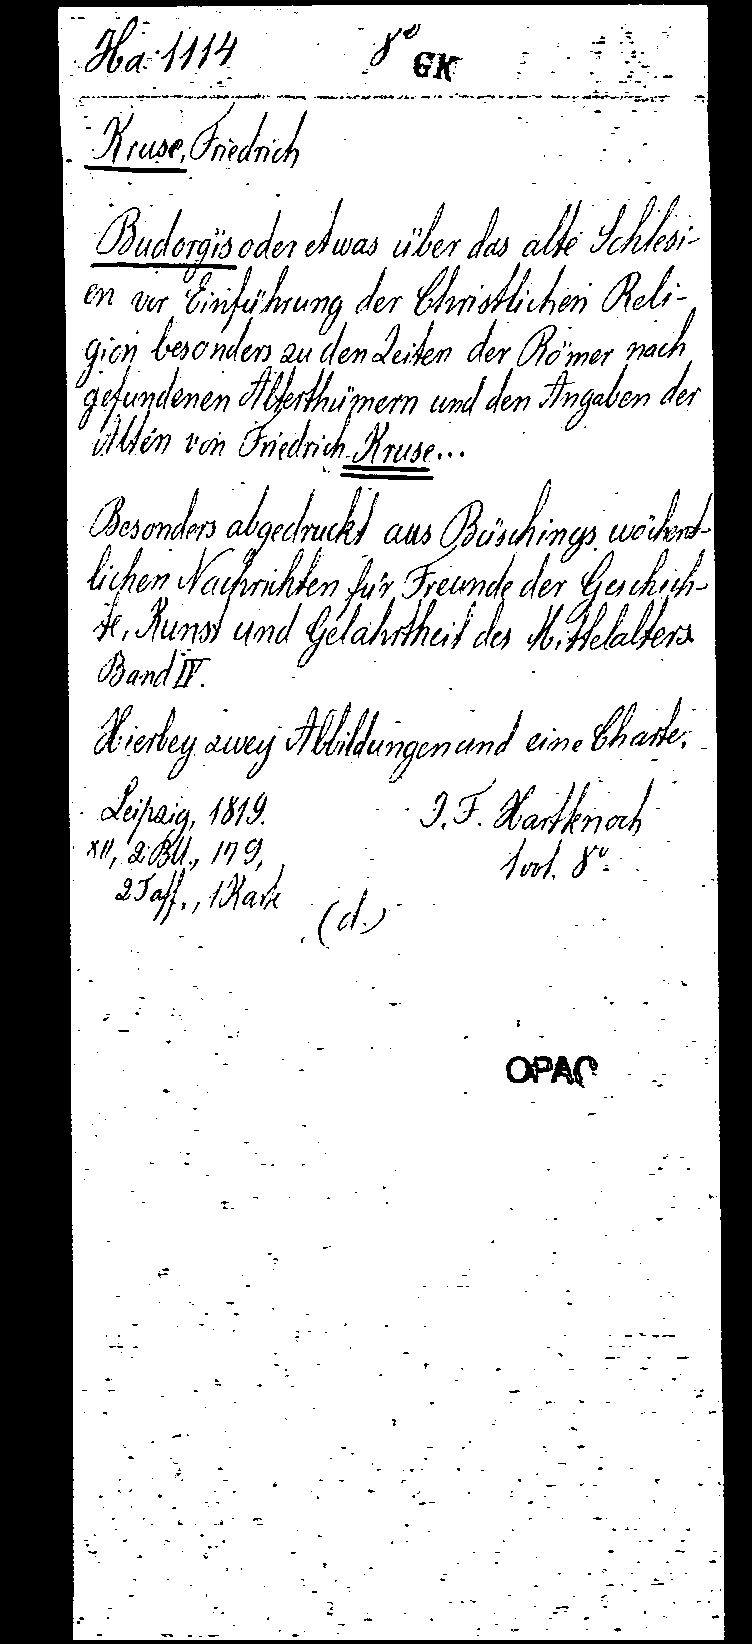 Ha 1114 8° GK
Kruse, Friedrich
Budorgis oder etwas über das alte Schlesi-
en vor Einführung der Christlichen Reli-
gion besonders zu den Zeiten der Römer nach
gefundenen Alterthümern und den Angaben der
Alten von Friedrich Kruse...
Besonders abgedruckt aus Büschings wöchent-
lichen Nachrichten für Freunde der Geschich-
te, Kunst und Gelahrtheit des Mittelalters
Band IV.
Hierbey zwey Abbildungen und eine Charte.
Leipzig, 1819. J. F. Hartknoch
XII, 2 Bll., 179, 1 vol. 8°.
2 Taff., 1 Karte
(d.)
OPAC